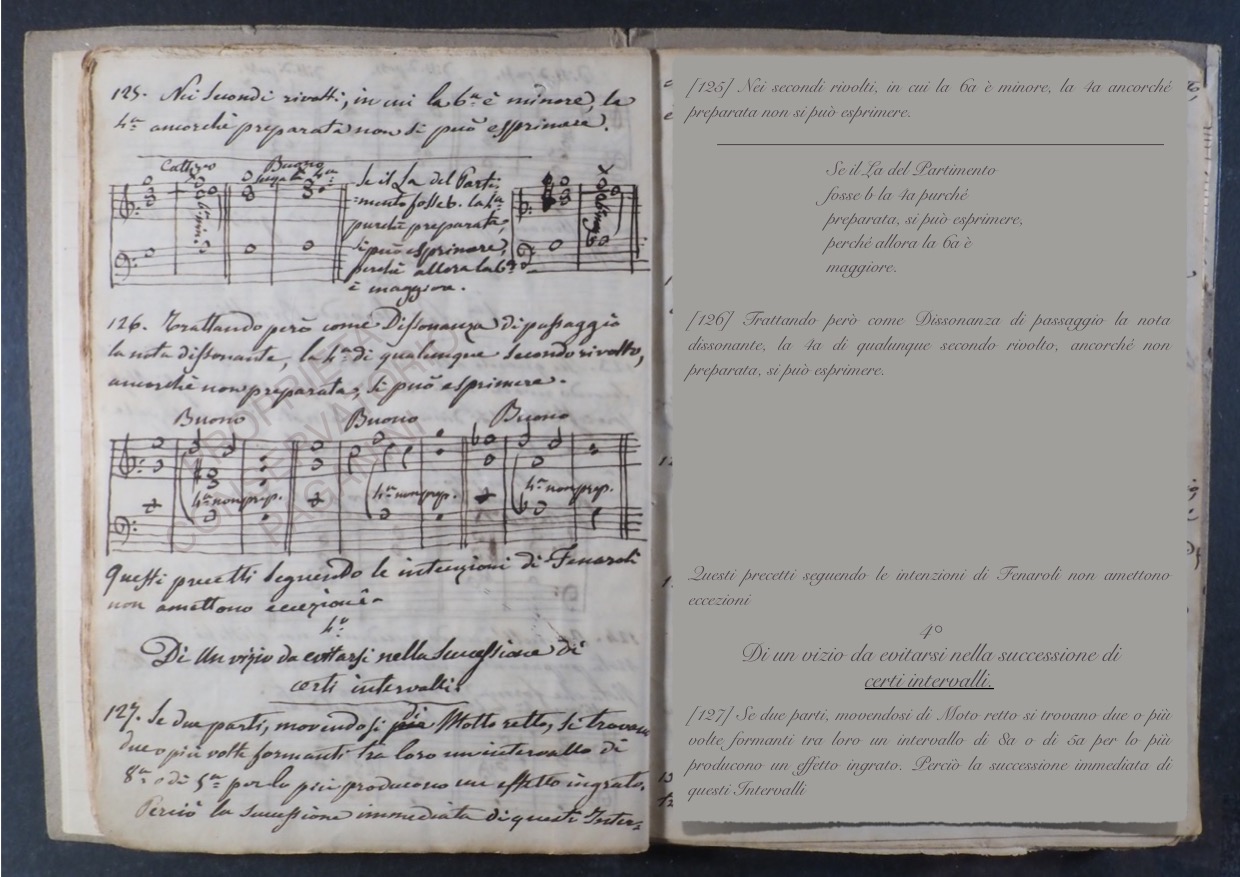 125. Nei Secondi rivolti, in cui la 6ª è minore, la
4ª ancorchè preparata non si può esprimere.
Cattivo
Buono
senza la 4ª
6ª min:
Se il La del Parti-
mento fosse b. la 4ª
purchè preparata,
si può esprimere,
perchè allora la 6ª
è maggiore.
6ª mag:
126. Trattando però come Dissonanza di passaggio
la nota dissonante, la 4ª di qualunque secondo rivolto,
ancorchè non preparata, si può esprimere.
Buono
Buono
Buono
4ª non prep.
4ª non prep.
4ª non prep.
Questi precetti seguendo le intenzioni di Fenaroli
non amettono eccezioni.
4º
Di un vizio da evitarsi nella successione di
certi intervalli.
127. Se due parti, movendosi di Motto retto, si trovan
due o più volte formanti tra loro un intervallo di
8ª o di 5ª per lo più producono un effetto ingrato.
Perciò la successione immediata di questi Inter-
PROPRIETÀ
CONSERVATORIO
PAGANINI
[125] Nei secondi rivolti, in cui la 6a è minore, la 4a ancorché
preparata non si può esprimere.
Se il La del Partimento
fosse b la 4a purché
preparata, si può esprimere,
perché allora la 6a è
maggiore.
[126] Trattando però come Dissonanza di passaggio la nota
dissonante, la 4a di qualunque secondo rivolto, ancorché non
preparata, si può esprimere.
Questi precetti seguendo le intenzioni di Fenaroli non amettono
eccezioni
4º
Di un vizio da evitarsi nella successione di
certi intervalli.
[127] Se due parti, movendosi di Moto retto si trovano due o più
volte formanti tra loro un intervallo di 8a o di 5a per lo più
producono un effetto ingrato. Perciò la successione immediata di
questi Intervalli